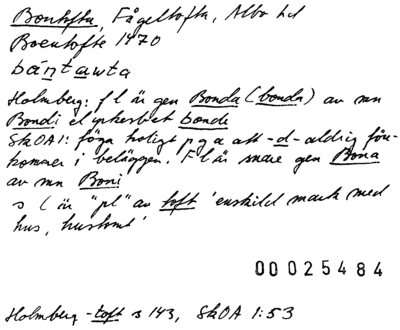 Bontofta, Fågeltofta, Albo hd
Boentofte 1470
bántawta
Holmberg: f l är gen Bonda (bonda) av mn
Bondi el yrkesbet bonde
SkOA 1: föga troligt p g a att -d- aldrig före-
kommer i beläggen. F l är snare gen Bona
av mn Boni
s l är "pl" av toft 'enskild mark med
hus, hustomt'
00025484
Holmberg -toft s 143, SkOA 1:53